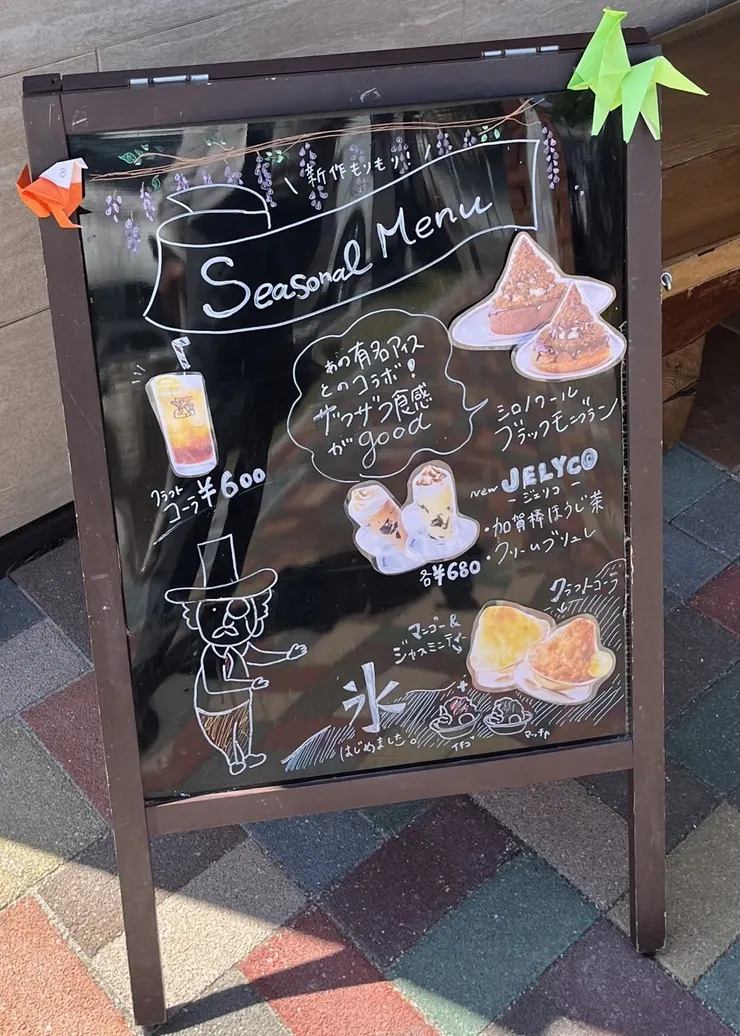 新作もりもり!
Seasonal Menu
あの有名アイス
とのコラボ!
ザクザク食感
がgood
シロノワール
ブラックモンブラン
クラフト
コーラ¥600
new JELYCO
-ジェリコ-
・加賀棒ほうじ茶
・クリームブリュレ
各¥680
クラフトコーラ
マンゴー&
ジャスミンティー
氷
はじめました。
イチゴ
マッチャ